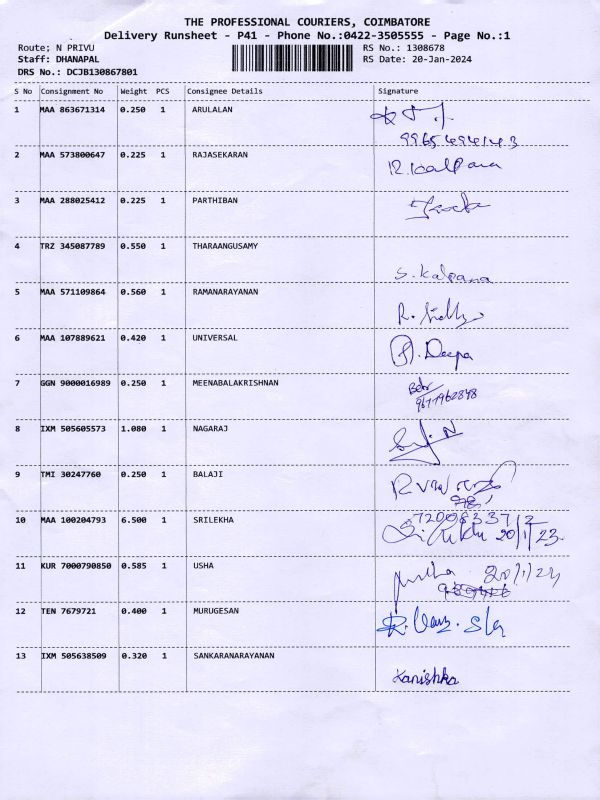 THE PROFESSIONAL COURIERS, COIMBATORE
Delivery Runsheet - P41 - Phone No.:0422-3505555 - Page No.:1
Route; N PRIVU RS No.: 1308678
Staff: DHANAPAL RS Date: 20-Jan-2024
DRS No.: DCJB130867801
S No Consignment No Weight PCS Consignee Details Signature
1 MAA 863671314 0.250 1 ARULALAN
2 MAA 573800647 0.225 1 RAJASEKARAN R. Kalpana
3 MAA 288025412 0.225 1 PARTHIBAN
4 TRZ 345087789 0.550 1 THARAANGUSAMY S. Kalpana
5 MAA 571109864 0.560 1 RAMANARAYANAN
6 MAA 107889621 0.420 1 UNIVERSAL Deepa
7 GGN 9000016989 0.250 1 MEENABALAKRISHNAN
8 IXM 505605573 1.080 1 NAGARAJ
9 TMI 30247760 0.250 1 BALAJI
10 MAA 100204793 6.500 1 SRILEKHA 20/1/23.
11 KUR 7000790850 0.585 1 USHA
12 TEN 7679721 0.400 1 MURUGESAN
13 IXM 505638509 0.320 1 SANKARANARAYANAN Kanishka